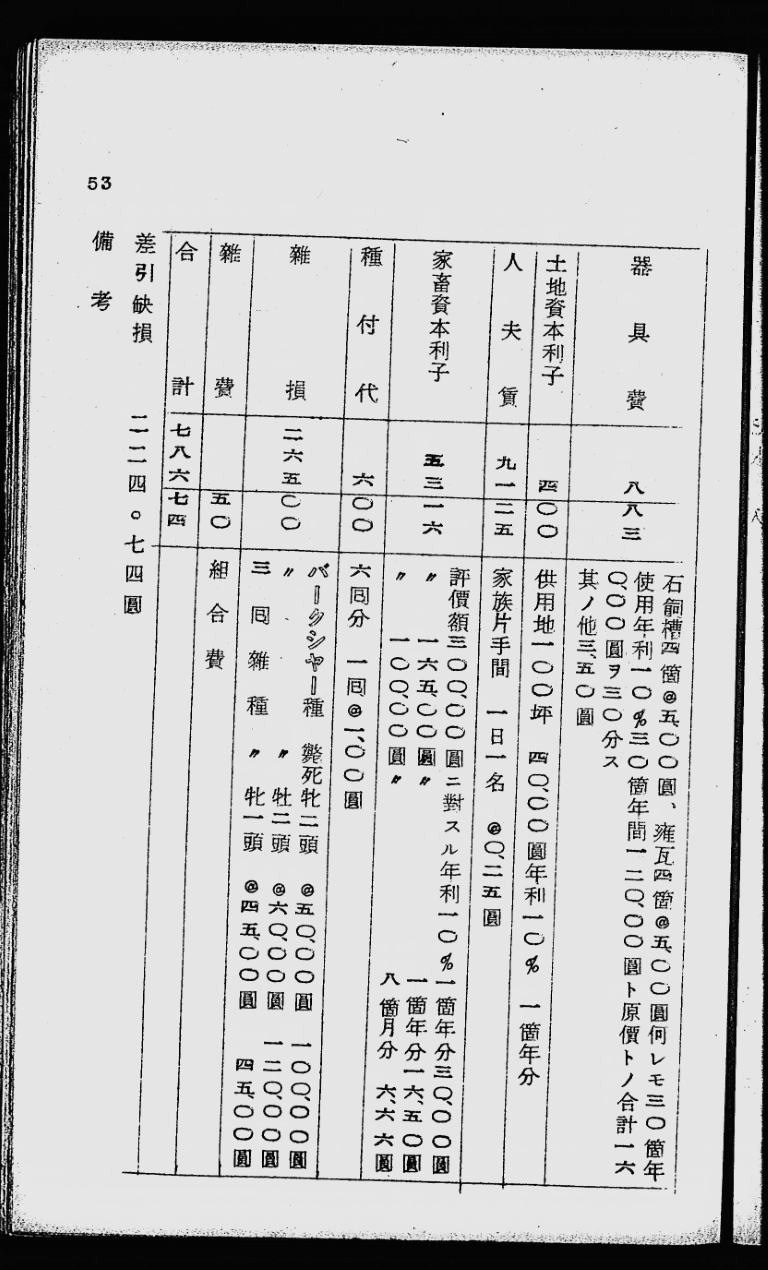 53
器具費 八八三 石飼槽四箇@五、〇〇圓、雍瓦四箇@五、〇〇圓何レモ三〇箇年
使用年利一〇%三〇箇年間一二〇、〇〇圓ト原價トノ合計一六
〇、〇〇圓ヲ三〇分ス
其ノ他三、五〇圓
土地資本利子 四〇〇 供用地一〇〇坪 四〇、〇〇圓年利一〇% 一箇年分
人夫賃 九一二五 家族片手間 一日一名 @〇、二五圓
家畜資本利子 五三一六 評價額三〇〇、〇〇圓ニ對スル年利一〇%一箇年分三〇、〇〇圓
〃 一六五、〇〇圓〃 一箇年分一六、五〇圓
〃 一〇〇、〇〇圓〃 八箇月分 六、六六圓
種付代 六〇〇 六囘分 一囘@一、〇〇圓
雜損 二六五〇〇 バークシャー種 斃死牝二頭 @五〇、〇〇圓 一〇〇、〇〇圓
〃 〃 牡二頭 @六〇、〇〇圓 一二〇、〇〇圓
三囘雜種 〃 牝一頭 @四五、〇〇圓 四五、〇〇圓
雜費 五〇 組合費
合計 七八六七四
差引缺損 二二四。七四圓
備考